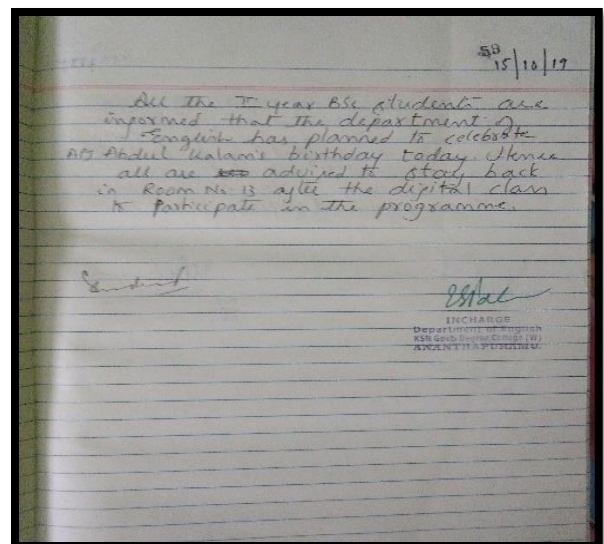 58
15/10/19
All the II year BSc students are
informed that the department of
English has planned to celebrate
APJ Abdul Kalam's birthday today. Hence
all are advised to stay back
in Room No. 13 after the digital class
to Participate in the programme.
INCHARGE
Department of English
KSN Govt Degree College (W)
ANANTHAPURAMU.